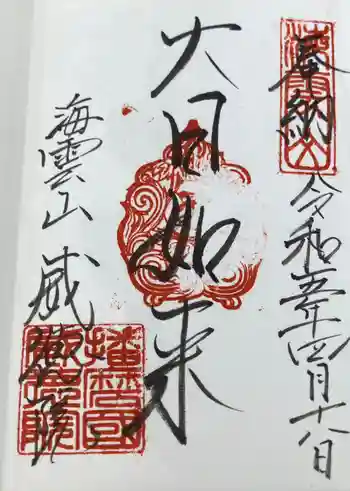 奉納
令和五年四月十八日
大日如来
海雲山 威徳院